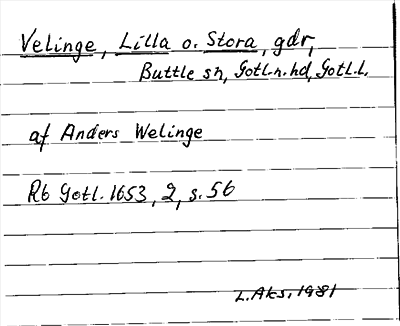 Velinge, Lilla o. Stora, gdr,
Buttle sn, Gotl. n. hd, Gotl. l.
af Anders Welinge
Rb Gotl. 1653, 2, s. 56
L. Aks, 1981